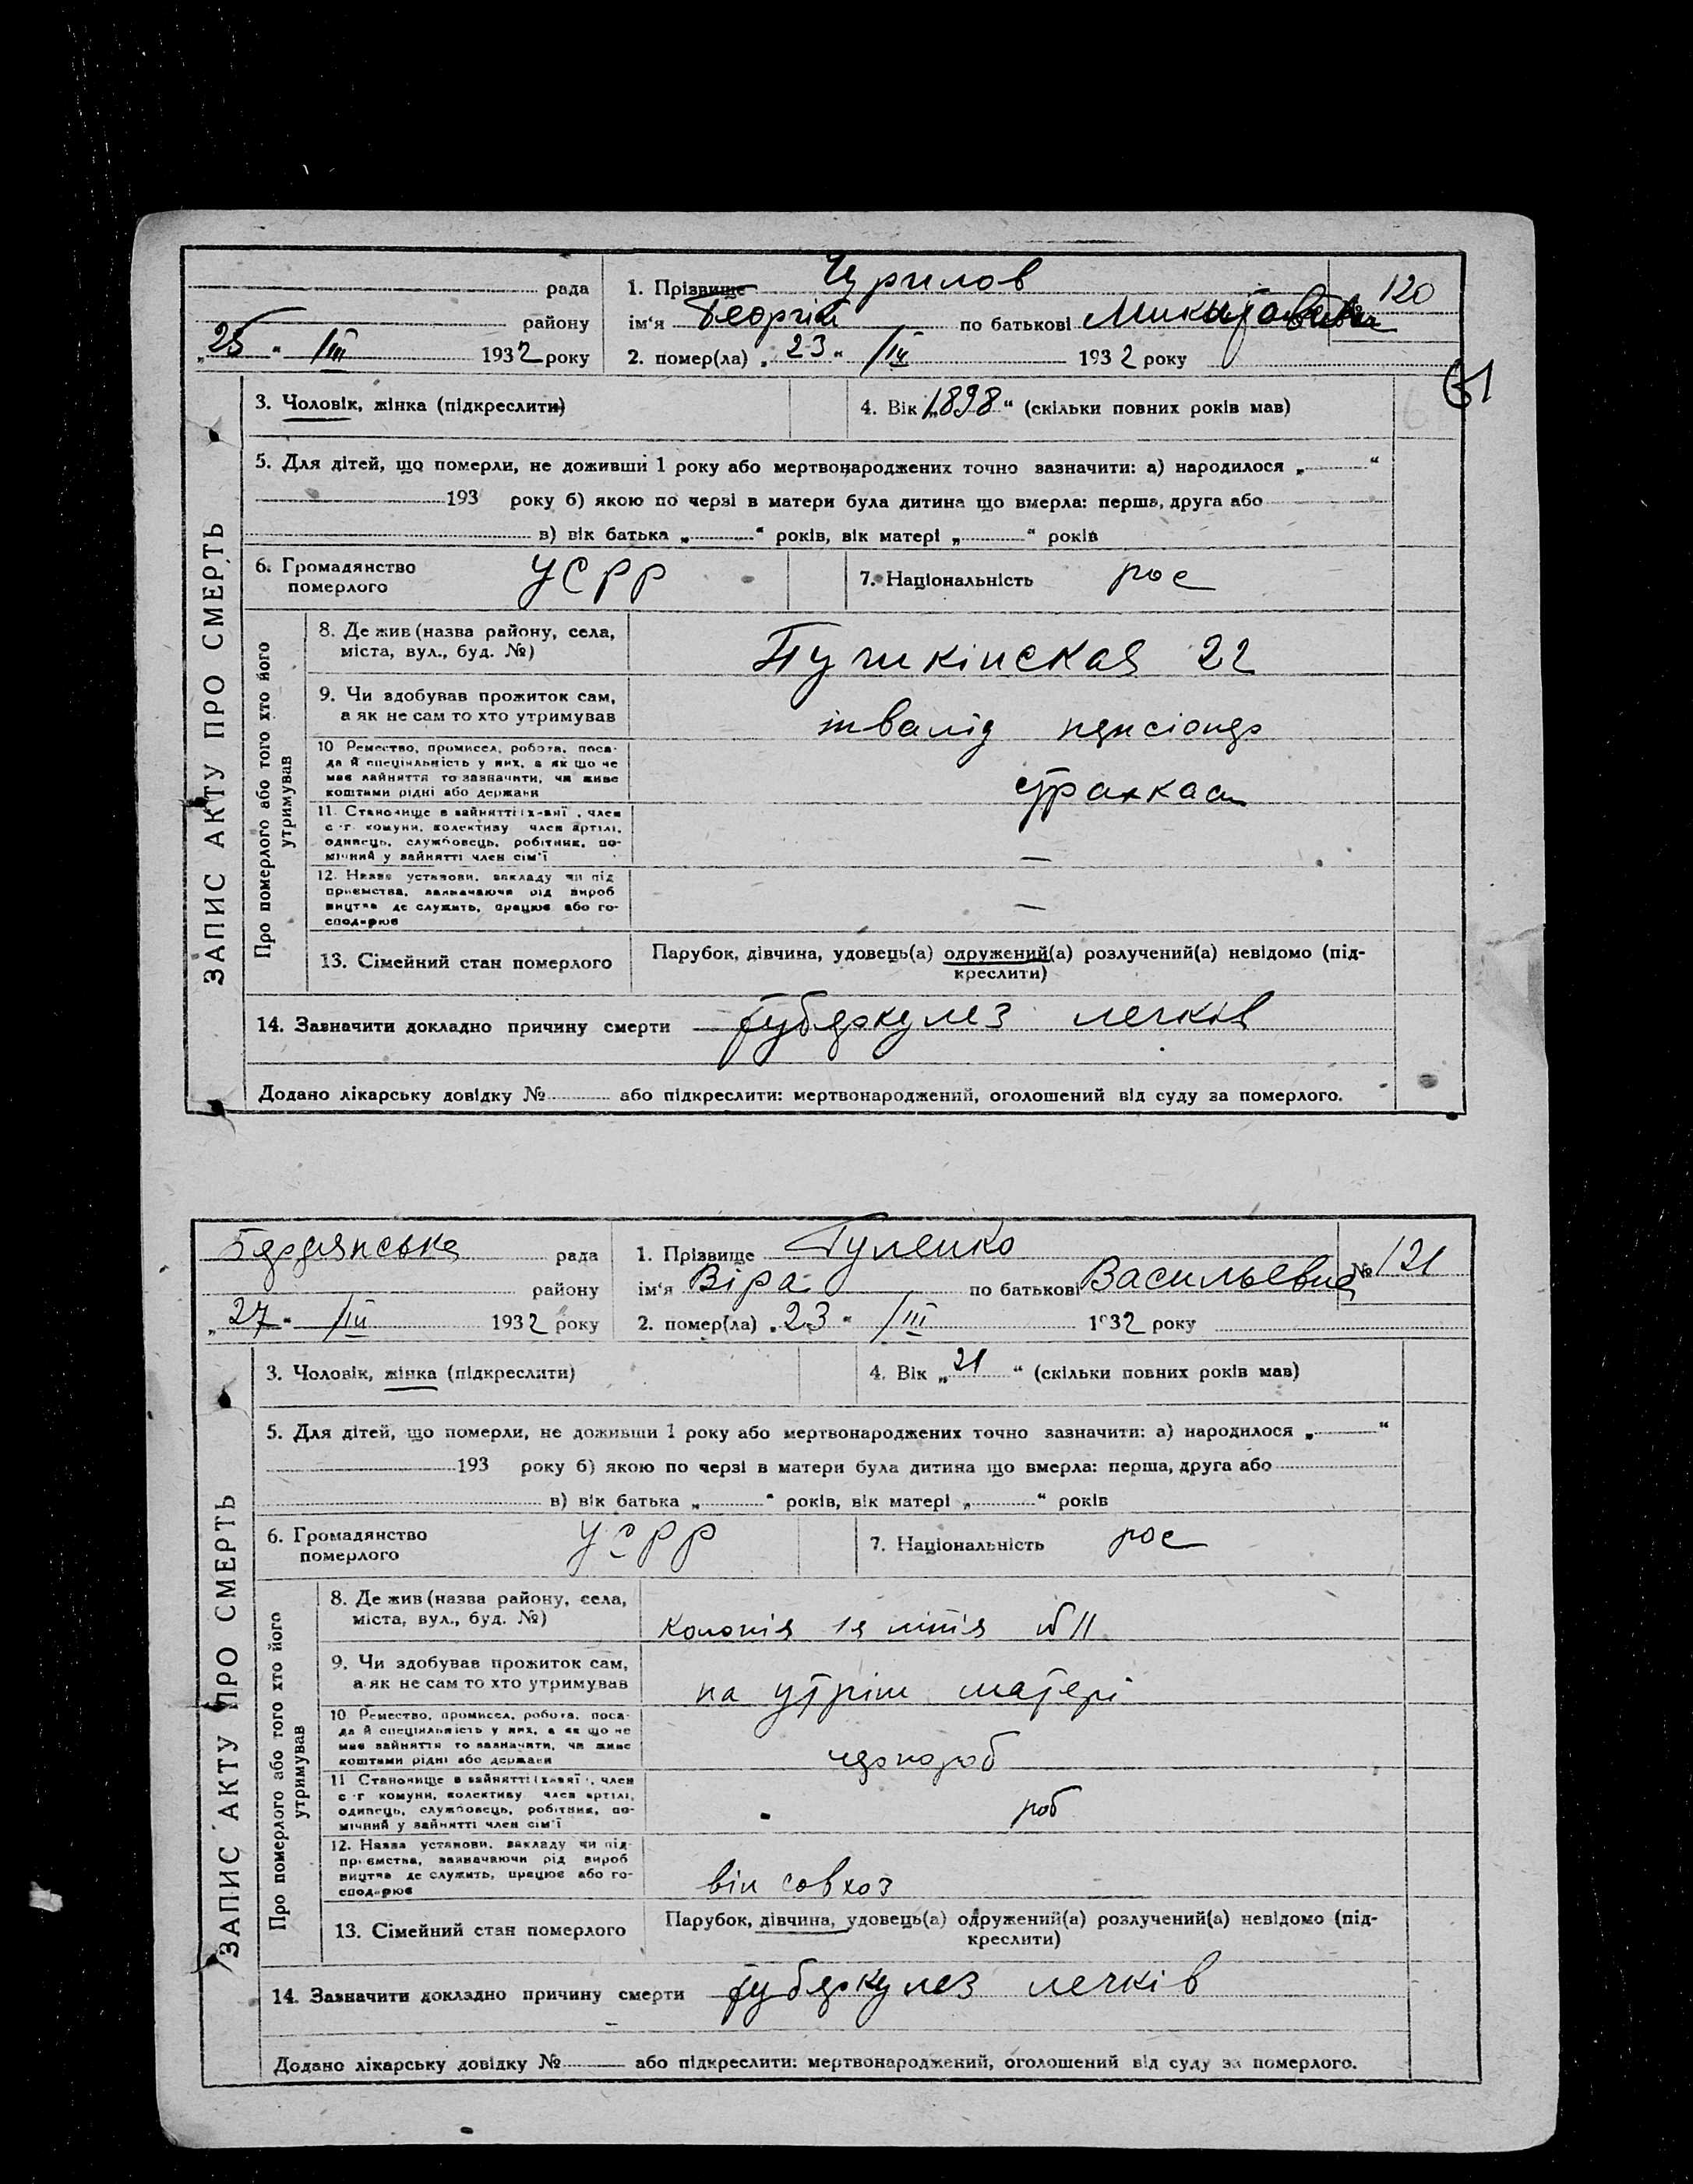 рада 1. Прізвище Чурилов 120
району ім'я Георгій по батькові Микитович
„25“ /III 1932 року 2. помер(ла) „23“ /III 1932 року
61
3. Чоловік, жінка (підкреслити) 4. Вік „1898“ (скільки повних років мав)
5. Для дітей, що померли, не доживши 1 року або мертвонароджених точно зазначити: а) народилося „ “
193 року б) якою по черзі в матери була дитина що вмерла: перша, друга або
в) вік батька „ “ років, вік матері „ “ років
6. Громадянство УСРР 7. Національність рос
померлого
ЗАПИС АКТУ ПРО СМЕРТЬ
Про померлого або того хто його
утримував
8. Де жив (назва району, села,
міста, вул., буд. №) Пушкінская 22
9. Чи здобував прожиток сам,
а як не сам то хто утримував інвалід пенсіонер
10 Ремество, промисел, робота, поса-
да й спеціяльність у них, а як що не
має зайняття то зазначити, чи живе
коштами рідні або держави страхкаси
11. Становище в зайнятті , член
с.-г. комуни, колективу член артілі,
одинець, службовець, робітник, по-
мічний у зайнятті член сім'ї —
12. Назва установи, закладу чи під
приємства, зазначаючи рід вироб
ництва де служить, працює або го-
сподарює —
13. Сімейний стан померлого Парубок, дівчина, удовець(а) одружений(а) розлучений(а) невідомо (під-
креслити)
14. Зазначити докладно причину смерти туберкулез легків
Додано лікарську довідку № або підкреслити: мертвонароджений, оголошений від суду за померлого.
Бердянська рада 1. Прізвище Гуленко № 121
району ім'я Віра по батькові Васильевна
„27“ /III 1932 року 2. помер(ла) „23“ /III 1932 року
3. Чоловік, жінка (підкреслити) 4. Вік „21“ (скільки повних років мав)
5. Для дітей, що померли, не доживши 1 року або мертвонароджених точно зазначити: а) народилося „ “
193 року б) якою по черзі в матери була дитина що вмерла: перша, друга або
в) вік батька „ “ років, вік матері „ “ років
6. Громадянство УСРР 7. Національність рос
померлого
ЗАПИС АКТУ ПРО СМЕРТЬ
Про померлого або того хто його
утримував
8. Де жив (назва району, села,
міста, вул., буд. №) Колонія 1я лінія № 11
9. Чи здобував прожиток сам,
а як не сам то хто утримував на утрім матері
10 Ремество, промисел, робота, поса-
да й спеціяльність у них, а як що не
має зайняття то зазначити, чи живе
коштами рідні або держави чернороб
11 Становище в зайнятті , член
с.-г. комуни, колективу член артілі,
одинець, службовець, робітник, по-
мічний у зайнятті член сім'ї роб
12. Назва установи, закладу чи під-
приємства, зазначаючи рід вироб
ництва де служить, працює або го-
сподарює він совхоз
13. Сімейний стан померлого Парубок, дівчина, удовець(а) одружений(а) розлучений(а) невідомо (під-
креслити)
14. Зазначити докладно причину смерти туберкулез легків
Додано лікарську довідку № або підкреслити: мертвонароджений, оголошений від суду за померлого.